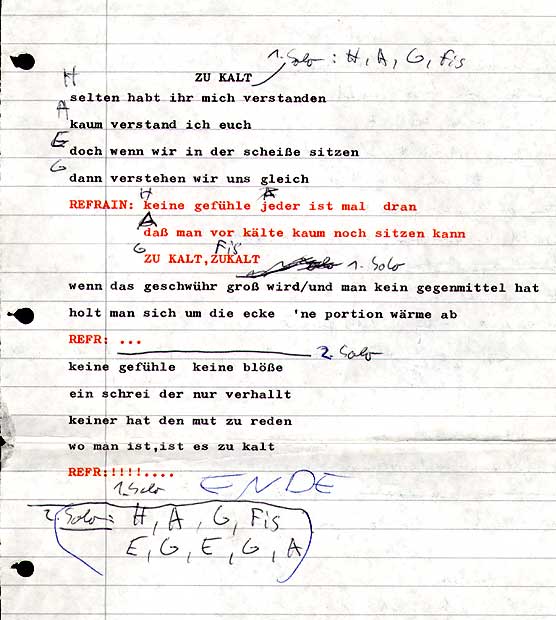 1. Solo : H, A, G, Fis
H
ZU KALT
selten habt ihr mich verstanden
A
kaum verstand ich euch
E
doch wenn wir in der scheiße sitzen
G
dann verstehen wir uns gleich
H A
REFRAIN: keine gefühle jeder ist mal dran
A
daß man vor kälte kaum noch sitzen kann
G Fis
ZU KALT,ZUKALT
1. Solo
wenn das geschwühr groß wird/und man kein gegenmittel hat
holt man sich um die ecke 'ne portion wärme ab
REFR: ...
2. Solo
keine gefühle keine blöße
ein schrei der nur verhallt
keiner hat den mut zu reden
wo man ist,ist es zu kalt
REFR:!!!!....
1. Solo ENDE
2. Solo: H, A, G, Fis
E, G, E, G, A